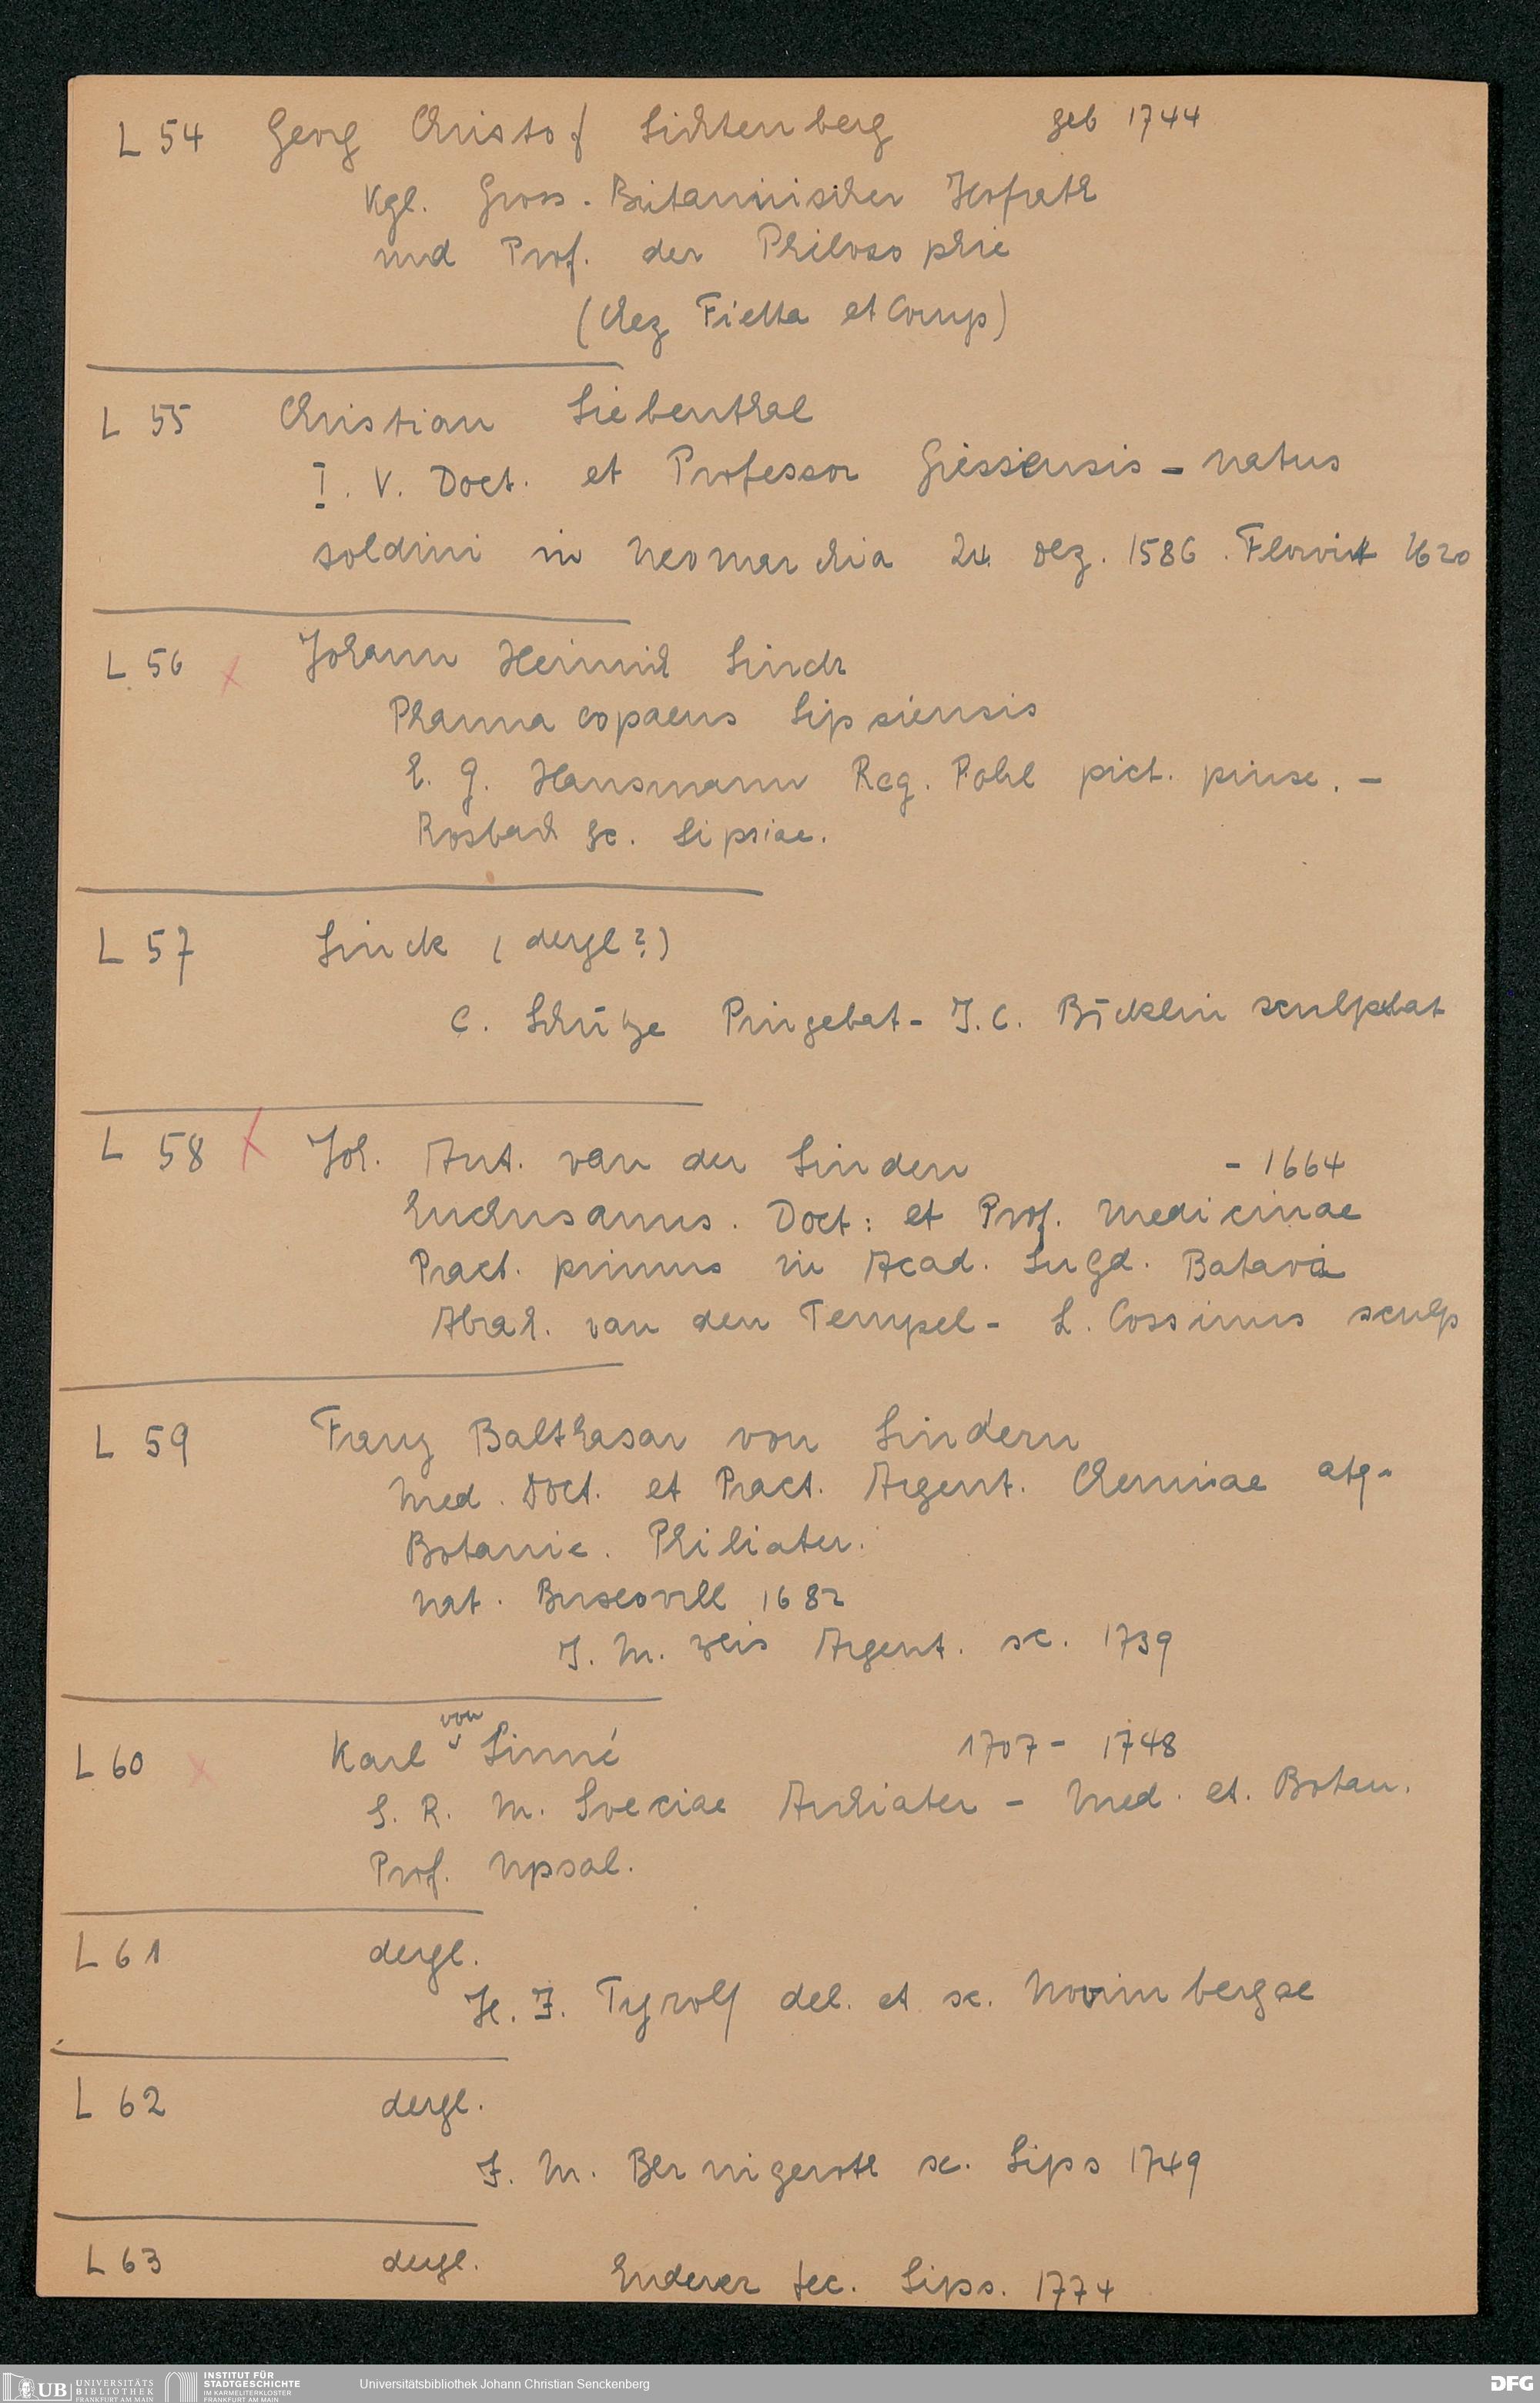 L 54 Georg Christof Lichtenberg geb 1744
Kgl. Gross-Britannischer Hofrath
und Prof. der Philosophie
(chez Fietta et Comp)
L 55 Christian Liebenthal
I. V. Doct. et Professor Giessensis - natus
soldini in Neomarchia 24 Dez. 1586. Floruit 1620
L 56 x Johann Heinrich Linck
Pharmacopaeus Lipsiensis
E. G. Hausmann Reg. Pohl pict. pinx. -
Rosbach sc. Lipsiae.
L 57 Linck (dergl?)
C. Schütze Pingebat - J. C. Böcklin sculpebat
L 58 x Joh. Ant. van der Linden - 1664
Enchusanus. Doct: et Prof. Medicinae
Pract. primus in Acad. Lugd. Batava
Abrah. van den Tempel - L. Cossinus sculp
L 59 Franz Balthasar von Lindern
Med. Doct. et Pract. Argent. Chemiae atq-
Botanic. Philiater.
nat. Buxovill 1682
J. M. Weis Argent. sc. 1739
L 60 x Karl von Linné 1707 - 1748
S. R. M. Sveciae Archiater - Med. et. Botan.
Prof. Upsal.
L 61 dergl.
H. J. Tyroff del. et sc. Norimbergae
L 62 dergl.
J. M. Bernigeroth sc. Lips 1749
L 63 dergl. Enderer fec. Lips. 1774
UB UNIVERSITÄTS
BIBLIOTHEK
FRANKFURT AM MAIN
INSTITUT FÜR
STADTGESCHICHTE
IM KARMELITERKLOSTER
FRANKFURT AM MAIN
Universitätsbibliothek Johann Christian Senckenberg
DFG